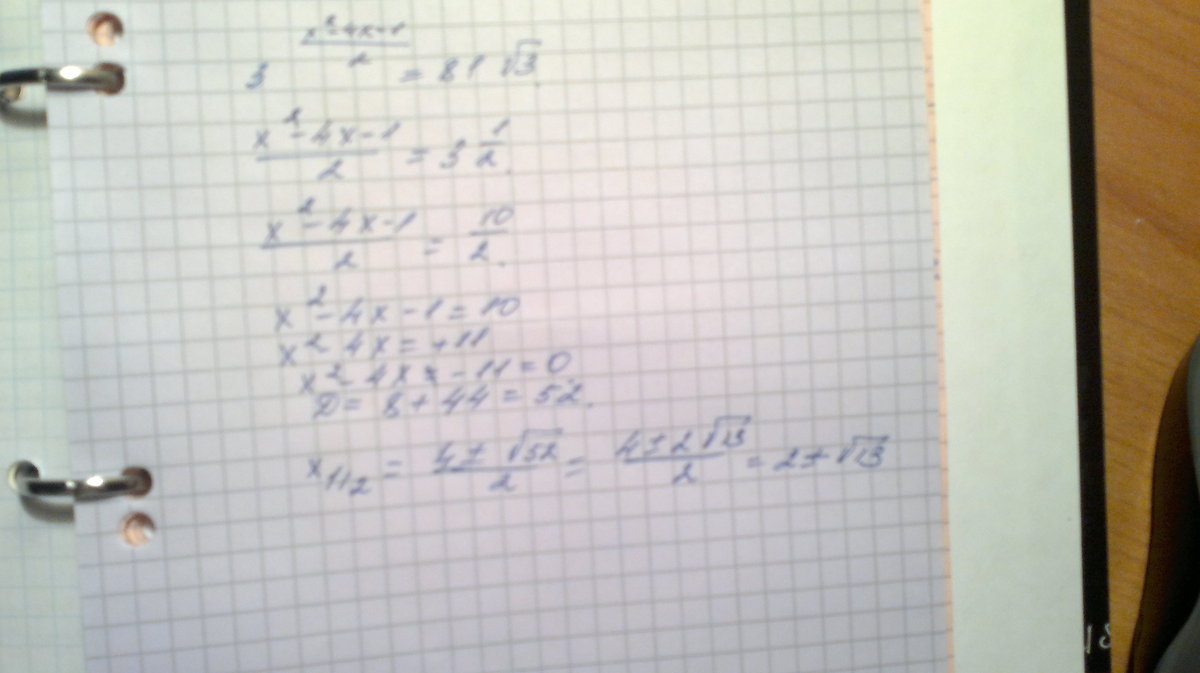 3^((x²-4x-1)/2) = 81 √3
(x²-4x-1)/2 = 3 1/2.
(x²-4x-1)/2 = 10/2.
x²-4x-1=10
x²-4x=+11
x²-4x-11=0
D= 8+44=52.
x₁,₂ = (4±√52)/2 = (4±2√13)/2 = 2±√13